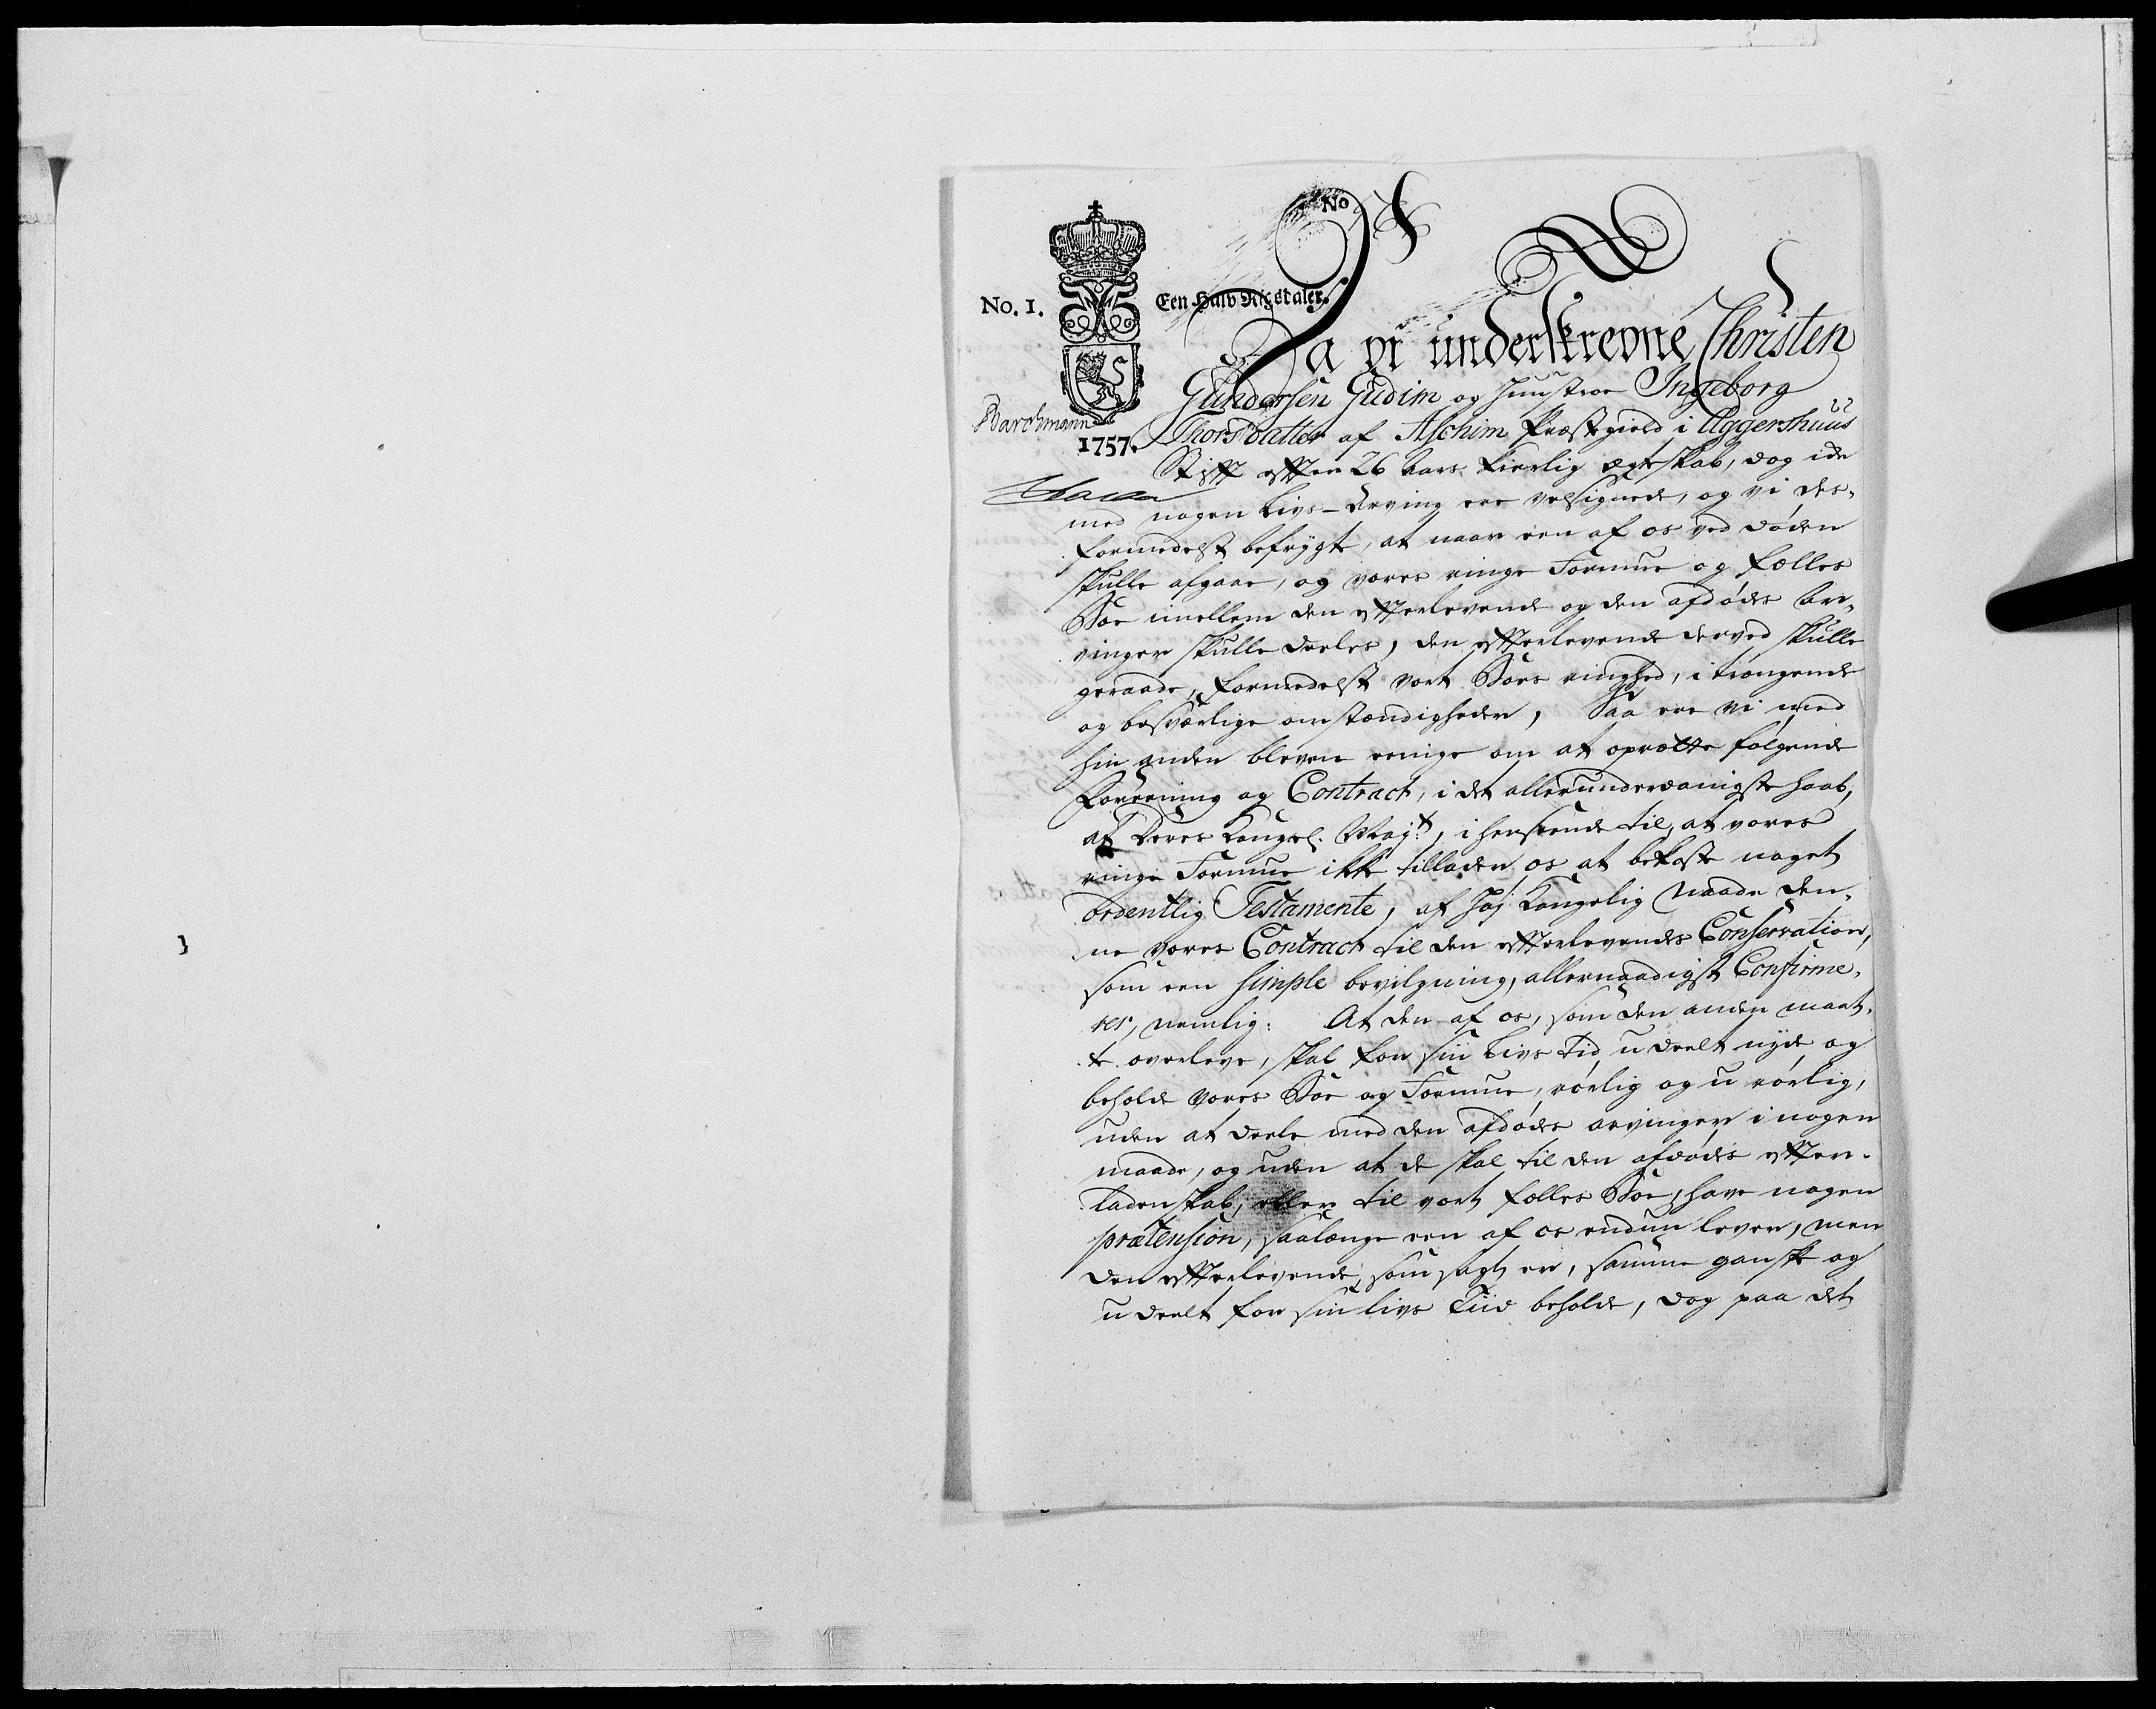 No
No. 1.
Een Halv Rigsdaler.
Da vi underskrevne Christen
Gundersen Gudim og Huustroe Ingeborg
Barchmann
Thorsdatter af Aschim Præstegield i Aggershuus
1757.
Stift efter 26 Aars kierlig ægteskab, dog icke
med nogen Livs-Arving ere velsignede, og vi des-
formedelst befrygte, at naar een af os ved døden
skulle afgaae, og vores ringe Formue og fælles
Boe imellem den efterlevende og den afdødes Ar-
vinger skulle deeles, den efterlevende derved skulle
geraade, formedelst vort Boes ringhed, i trængende
og besværlige omstændigheder, Saa ere vi med
hin anden bleven eenige om at oprætte følgende
Foreening og Contract, i det allerunderdanigste haab,
at Deres Kongel. May:t, i henseende til, at vores
ringe Formue ikke tillader os at bekoste noget
ordentlig Testamente, af høj Kongelig Naade den-
ne vores Contract til den efterlevendes Conservation,
som een simple bevilgning, allernaadigst Confirme-
rer, nemlig: At den af os, som den anden maat-
te overleve, skal for sin Livs Tid udeelt nyde og
beholde vores Boe og Formue, rørlig og urørlig,
uden at deele med den afdødes arvinger i nogen
maade, og uden at de skal til den afdødes efter-
ladenskab, eller til vort fælles Boe, have nogen
prætension, saalænge een af os endnu lever, men
den efterlevende, som sagt er, samme ganske og
udeelt for sin livs Tiid beholde, dog paa det